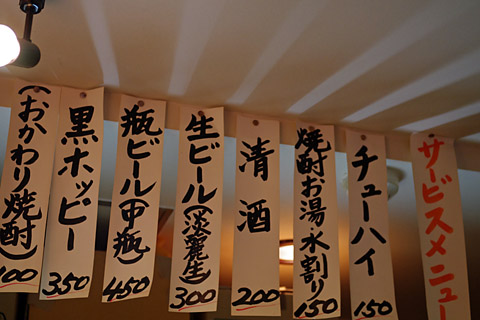 サービスメニュー
チューハイ
150
焼酎お湯・水割り
150
清酒
200
生ビール(淡麗生)
300
瓶ビール(中瓶)
450
黒ホッピー
350
(おかわり焼酎)
100